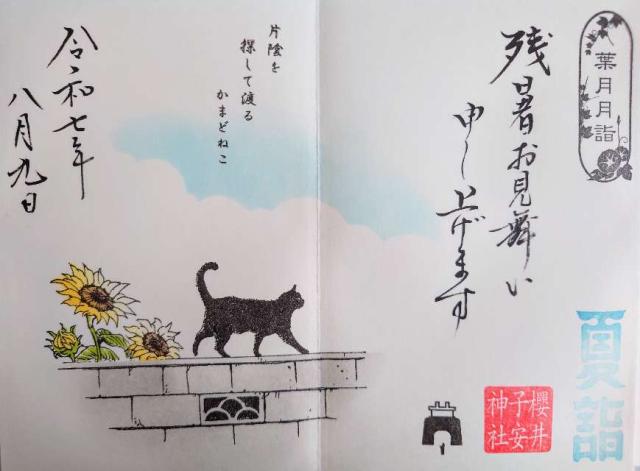 葉月月詣
残暑お見舞い
申し上げます
夏詣
櫻井
子安
神社
片陰を
探して渡る
かまどねこ
令和七年
八月九日